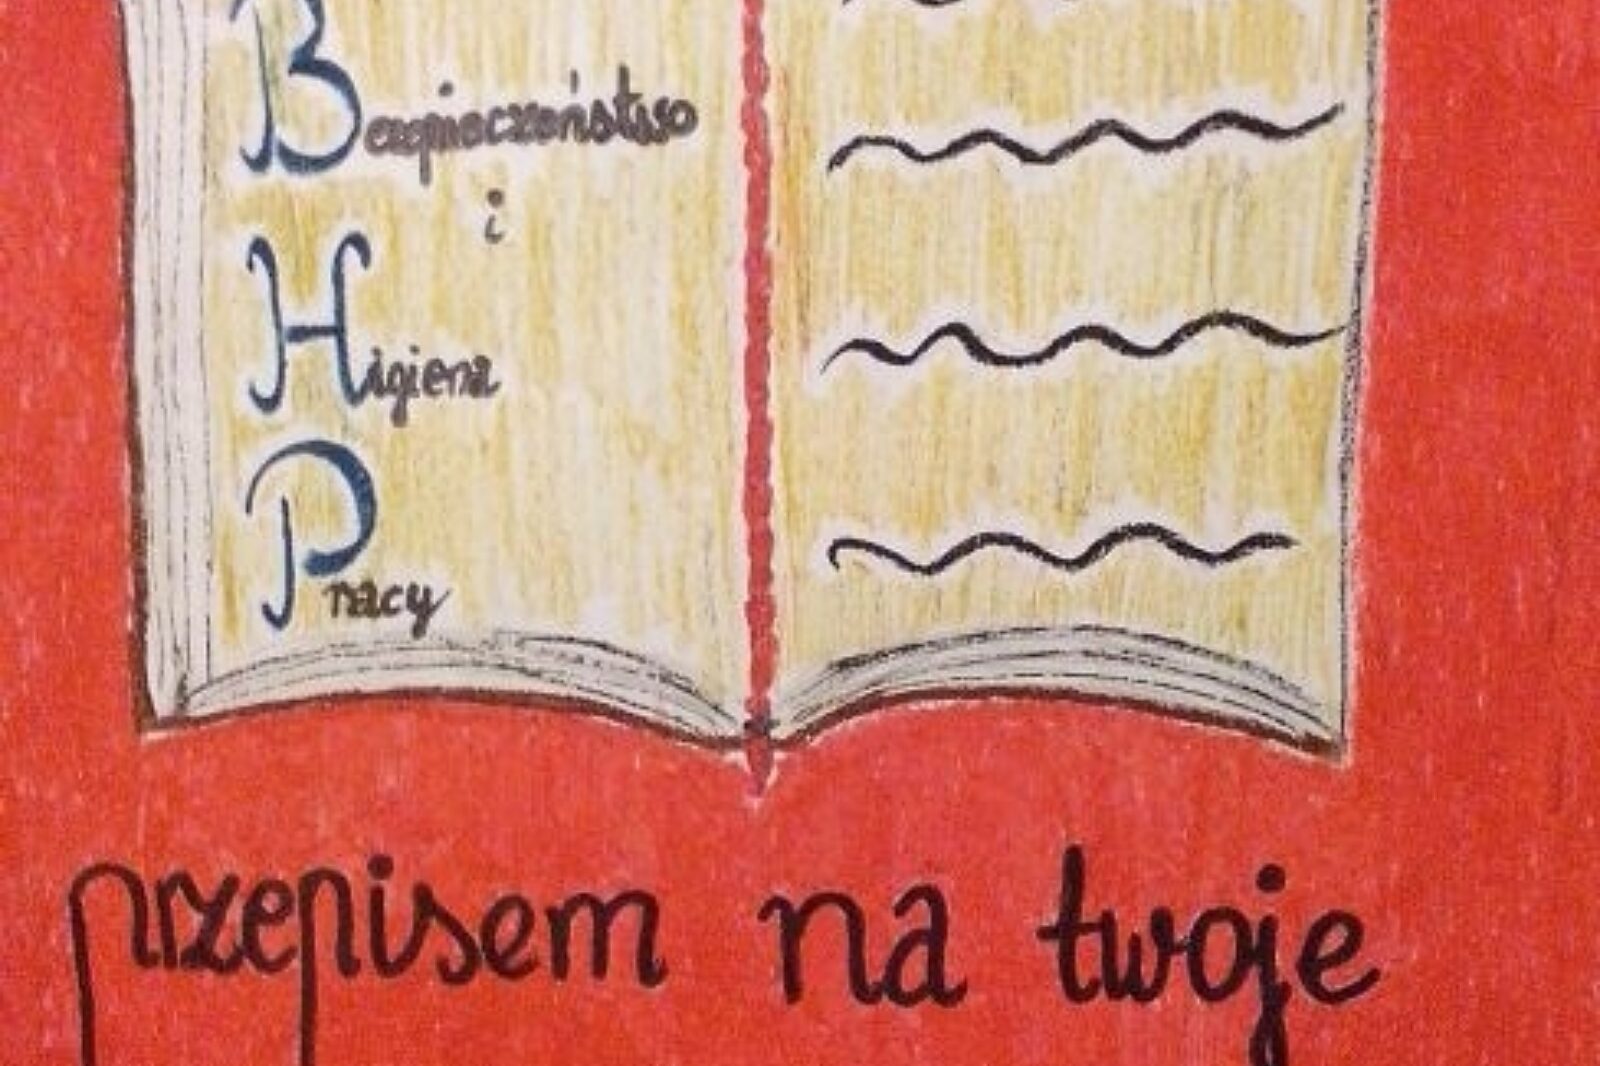 Bezpieczeństwo
i
Higiena
Pracy
przepisem na twoje